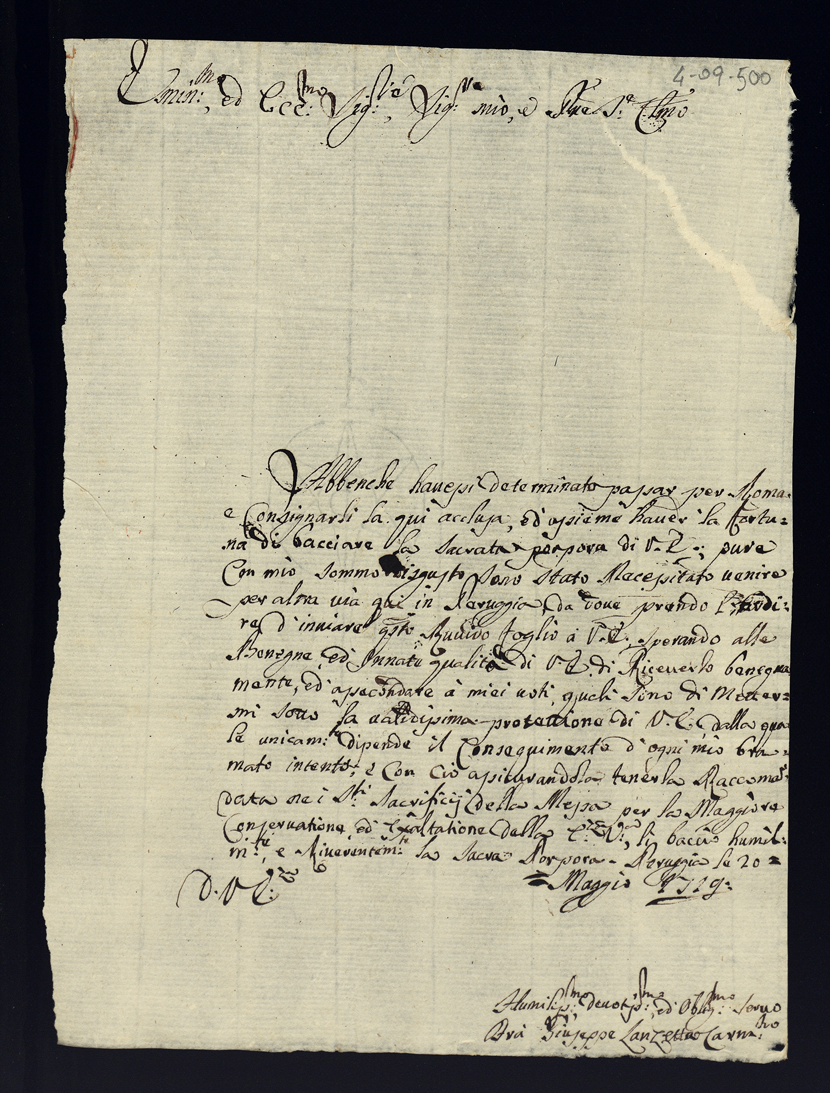 4-09-500
Emin:mo, ed Ecc:mo Sig:re, Sig:re mio, e
Abbenche hauessi determinato passar per Roma
e Consignarli la qui acclusa, ed'assieme hauer la fortu=
na di bacciare la Sacrata porpora di V.E.; pure
Con mio sommo disgusto sono stato Necessitato uenire
per altra uia qui in Peruggia, da doue prendo l'ardi=
re d'inuiare qsto Ruuido foglio à V.E. sperando alle
Benegne, ed Innate qualità di VE di Riceuerlo benegna
mente, ed'asecondare à miei uoti, quali sono di Metter=
mi sotto la ualidissima protettione di V.E. dalla qua
le unicam:te dipende il Conseguimento d'ogni mio bra=
mato intento; e Con Ciò assicurandola tenerla Raccoman
data nei Sti Sacrificij della Messa per la Maggiore
Conseruatione, ed Exaltatione della E:za V:a, li baccio humil=
m:te, e Riuerentem:te la Sacra Porpora. Peruggia le 20=
= Maggio 1719:
D. V E:za
Humiliss:mo deuotiss:mo, ed Oblig:mo Seruo
Fra Giuseppe Lanzetta Carm:no